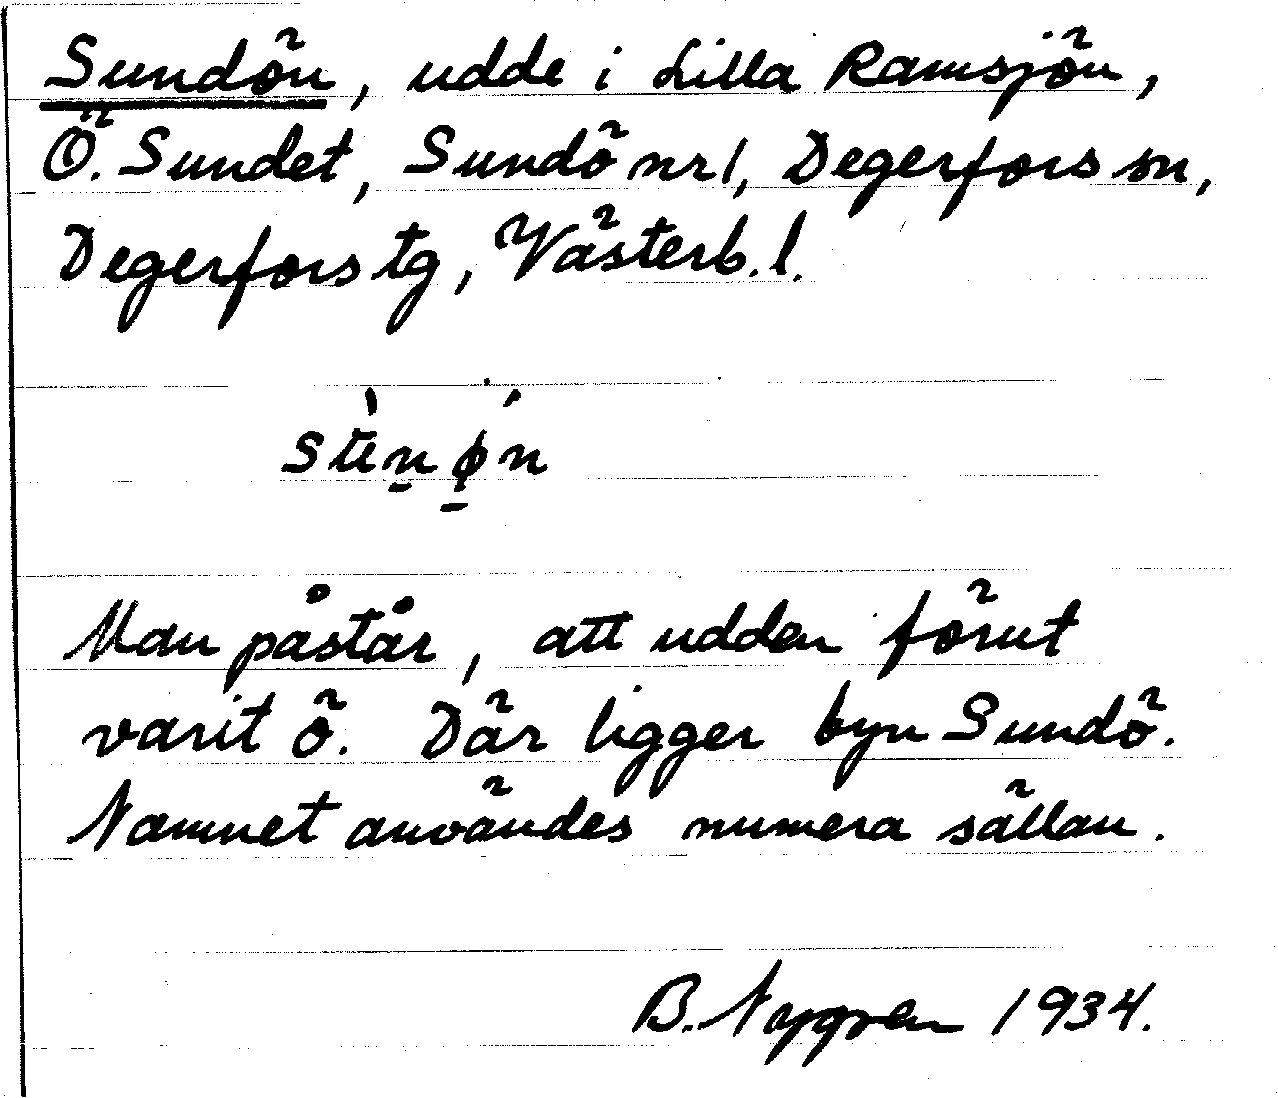 Sundön, udde i Lilla Ramsjön,
Ö. Sundet, Sundö nr 1, Degerfors sn,
Degerfors tg, Västerb. l.
Man påstår, att udden förut
varit ö. Där ligger byn Sundö.
Namnet användes numera sällan.
B. Nygren 1934.